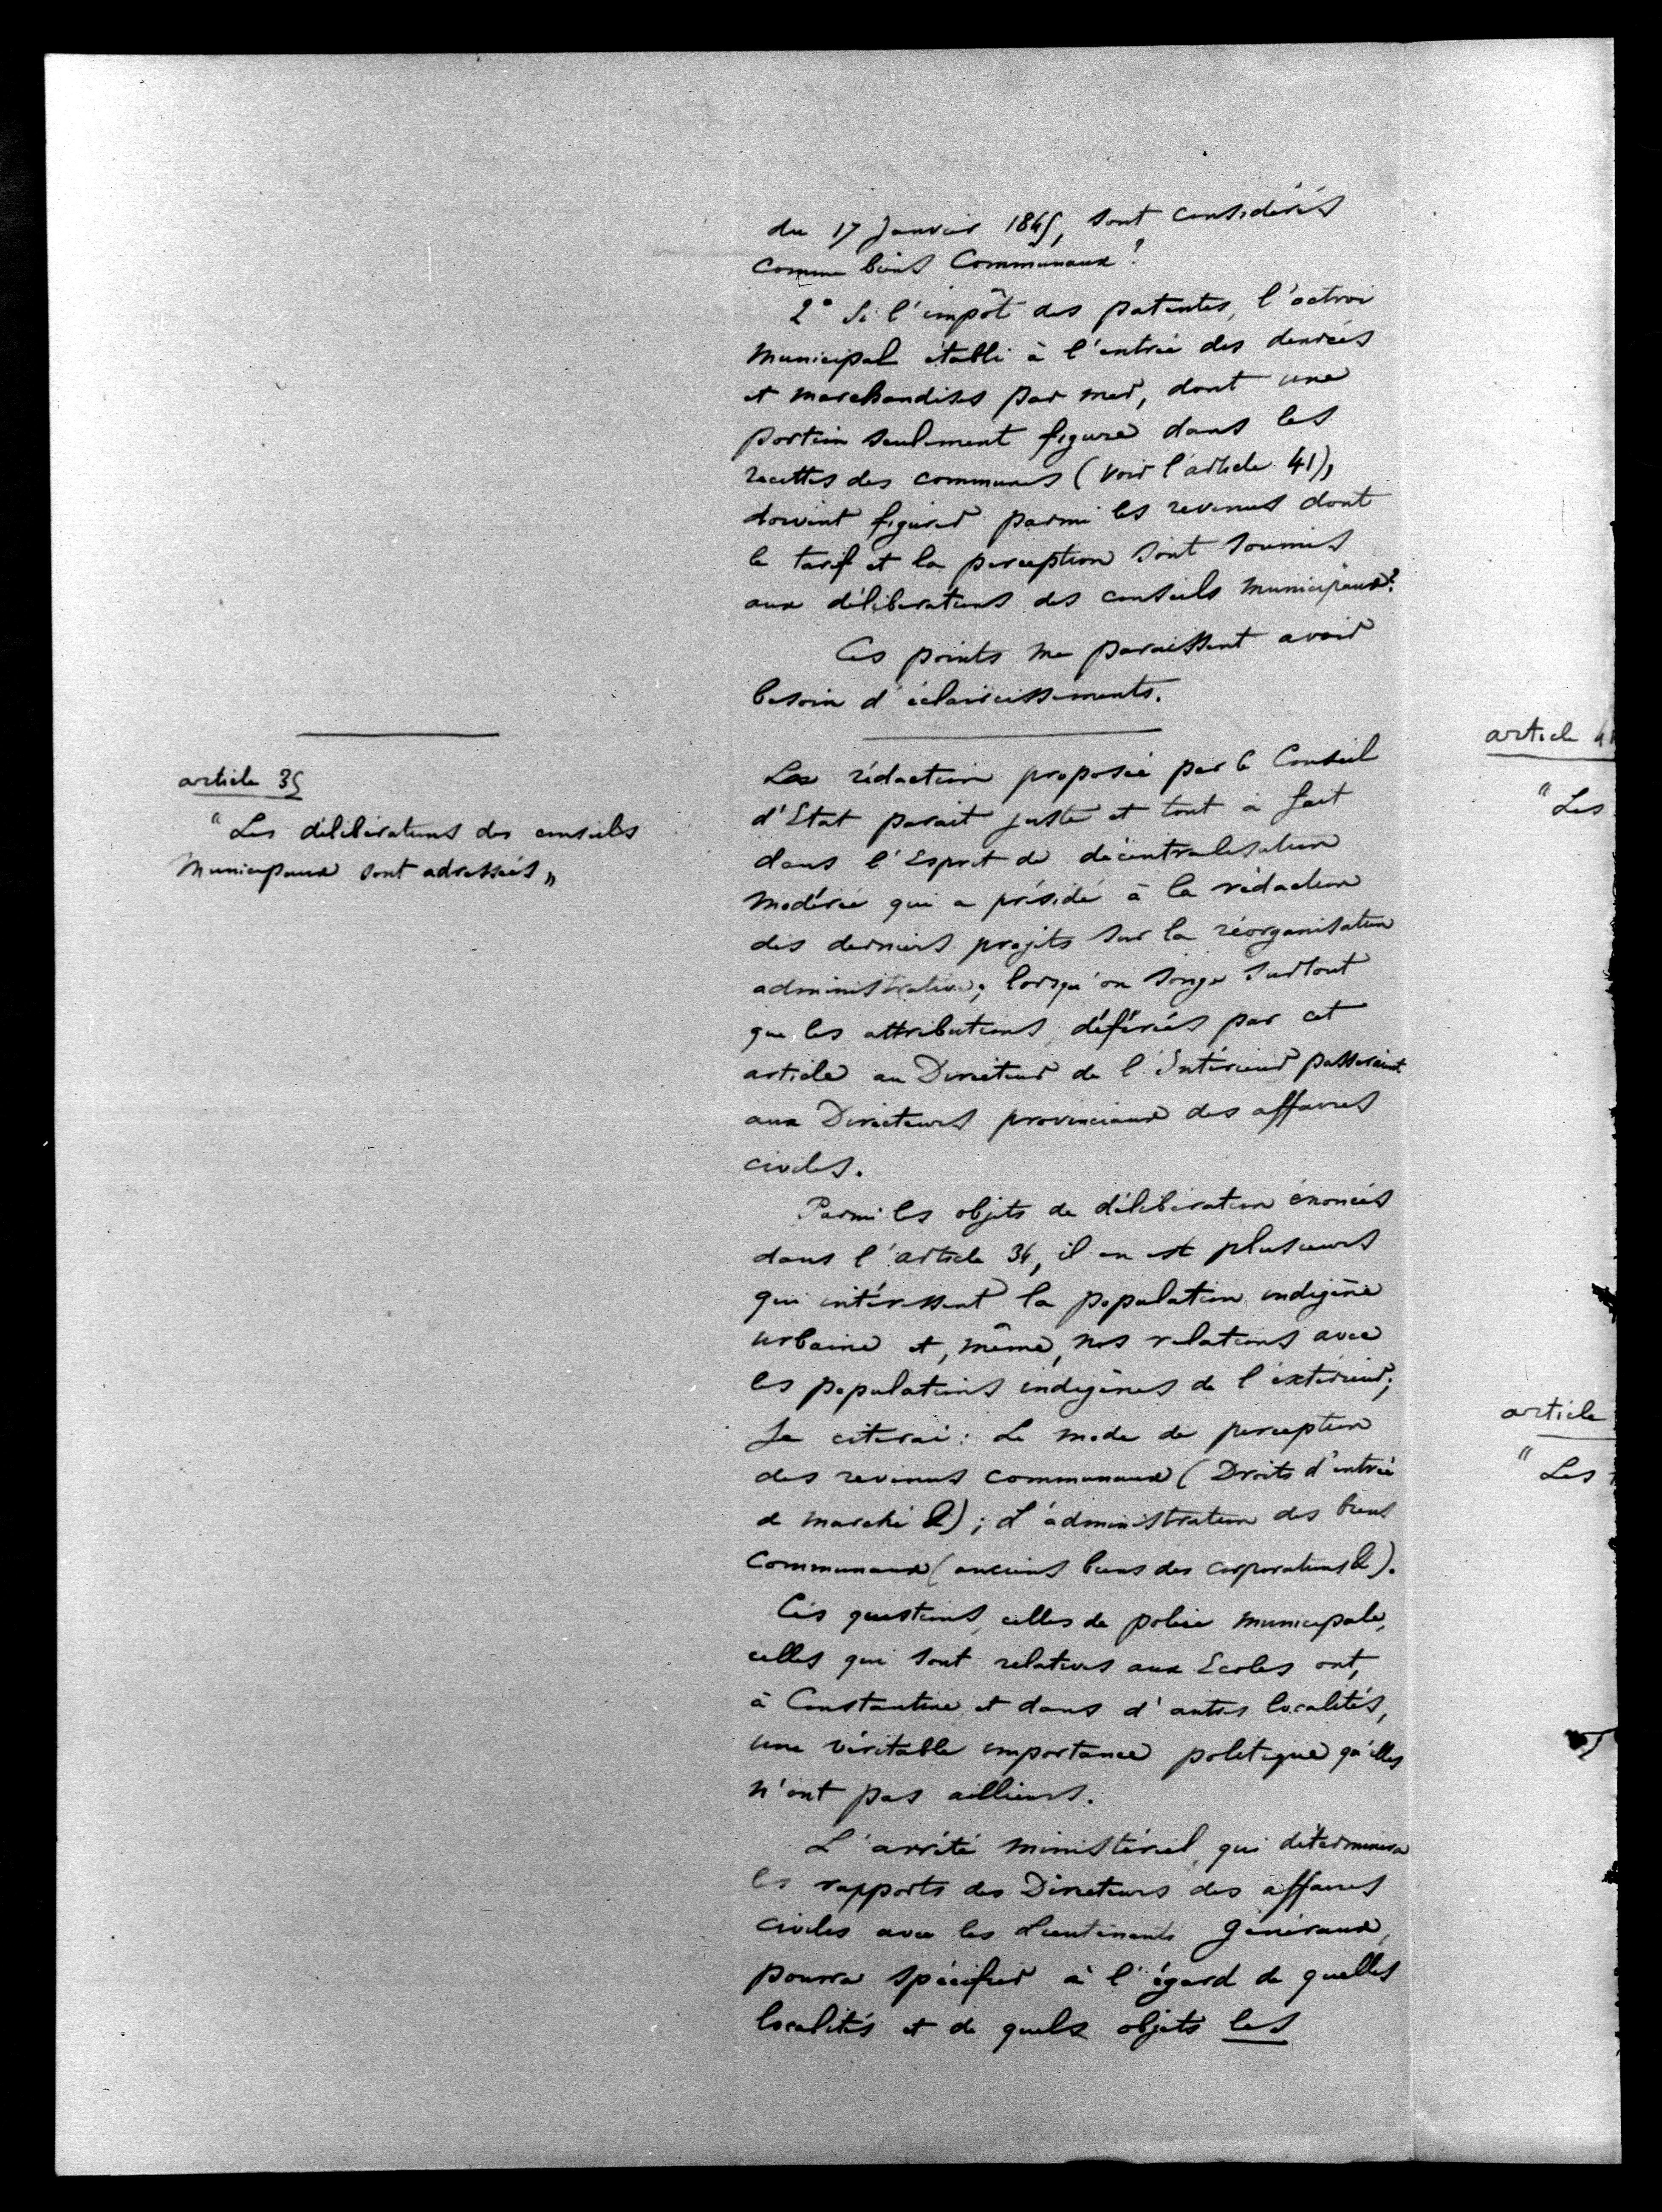 du 17 Janvier 1845, sont considérés
comme biens Communaux ?
2° Si l'impôt des patentes, l'octroi
Municipal établi à l'entrée des denrées
et marchandises par mer, dont une
portion seulement figure dans les
recettes des communes (voir l'article 41),
doivent figurer parmi les revenus dont
le tarif et la perception sont soumis
aux délibérations des conseils municipaux ?
Ces points me paraissent avoir
besoin d'éclaircissements.
article 35
"Les délibérations des conseils
Municipaux sont adressées"
La rédaction proposée par le Conseil
d'Etat parait juste et tout à fait
dans l'Esprit de décentralisation
modérée qui a présidé à la rédaction
des derniers projets sur la réorganisation
administrative; lorsqu'on songe surtout
que les attributions, déférées par cet
article au Directeur de l'Intérieur passeraient
aux Directeurs provinciaux des affaires
civiles.
Parmi les objets de délibération énoncés
dans l'article 34, il en est plusieurs
qui intéressent la population indigène
urbaine et, même, nos relations avec
les populations indigènes de l'extérieur;
Je citerai : Le mode de perception
des revenus communaux (Droits d'entrée
de marché &); L'administration des biens
Communaux (anciens biens des corporations &).
Ces questions, celles de police municipale,
celles qui sont relatives aux Ecoles ont,
à Constantine et dans d'autres localités,
une véritable importance politique qu'elles
n'ont pas ailleurs.
L'arrêté ministériel, qui déterminera
les rapports des Directeurs des affaires
civiles avec les Lieutenants Généraux,
pourra spécifier à l'égard de quelles
localités et de quels objets les
article 41
"Les
article
"Les